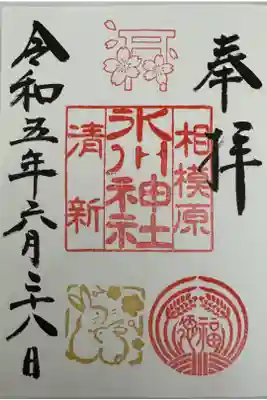 奉拝
相模原
氷川神社
清新
令和五年六月二十八日
福徳